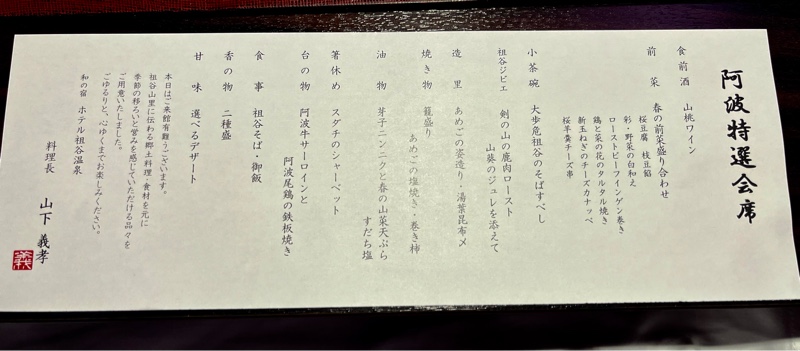 阿波特選会席
食前酒 山桃ワイン
前菜 春の前菜盛り合わせ
桜豆腐 枝豆餡
彩・野菜の白和え
ローストビーフインゲン巻き
鶏と菜の花のタルタル焼き
新玉ねぎのチーズカナッペ
桜羊羹チーズ串
小茶碗 大歩危祖谷のそばすべし
祖谷ジビエ 剣の山の鹿肉ロースト
山葵のジュレを添えて
造里 あめごの姿造り・湯葉昆布〆
焼き物 籠盛り
あめごの塩焼き・巻き柿
油物 芽子ニンニクと春の山菜天ぷら
すだち塩
箸休め スダチのシャーベット
台の物 阿波牛サーロインと
阿波尾鶏の鉄板焼き
食事 祖谷そば・御飯
香の物 二種盛
甘味 選べるデザート
本日はご来館有難うございます。
祖谷山里に伝わる郷土料理・食材を元に
季節の移ろいと営みを感じていただける品々を
ご用意いたしました。
ごゆるりと、心ゆくまでお楽しみください。
和の宿 ホテル祖谷温泉
料理長 山下 義孝